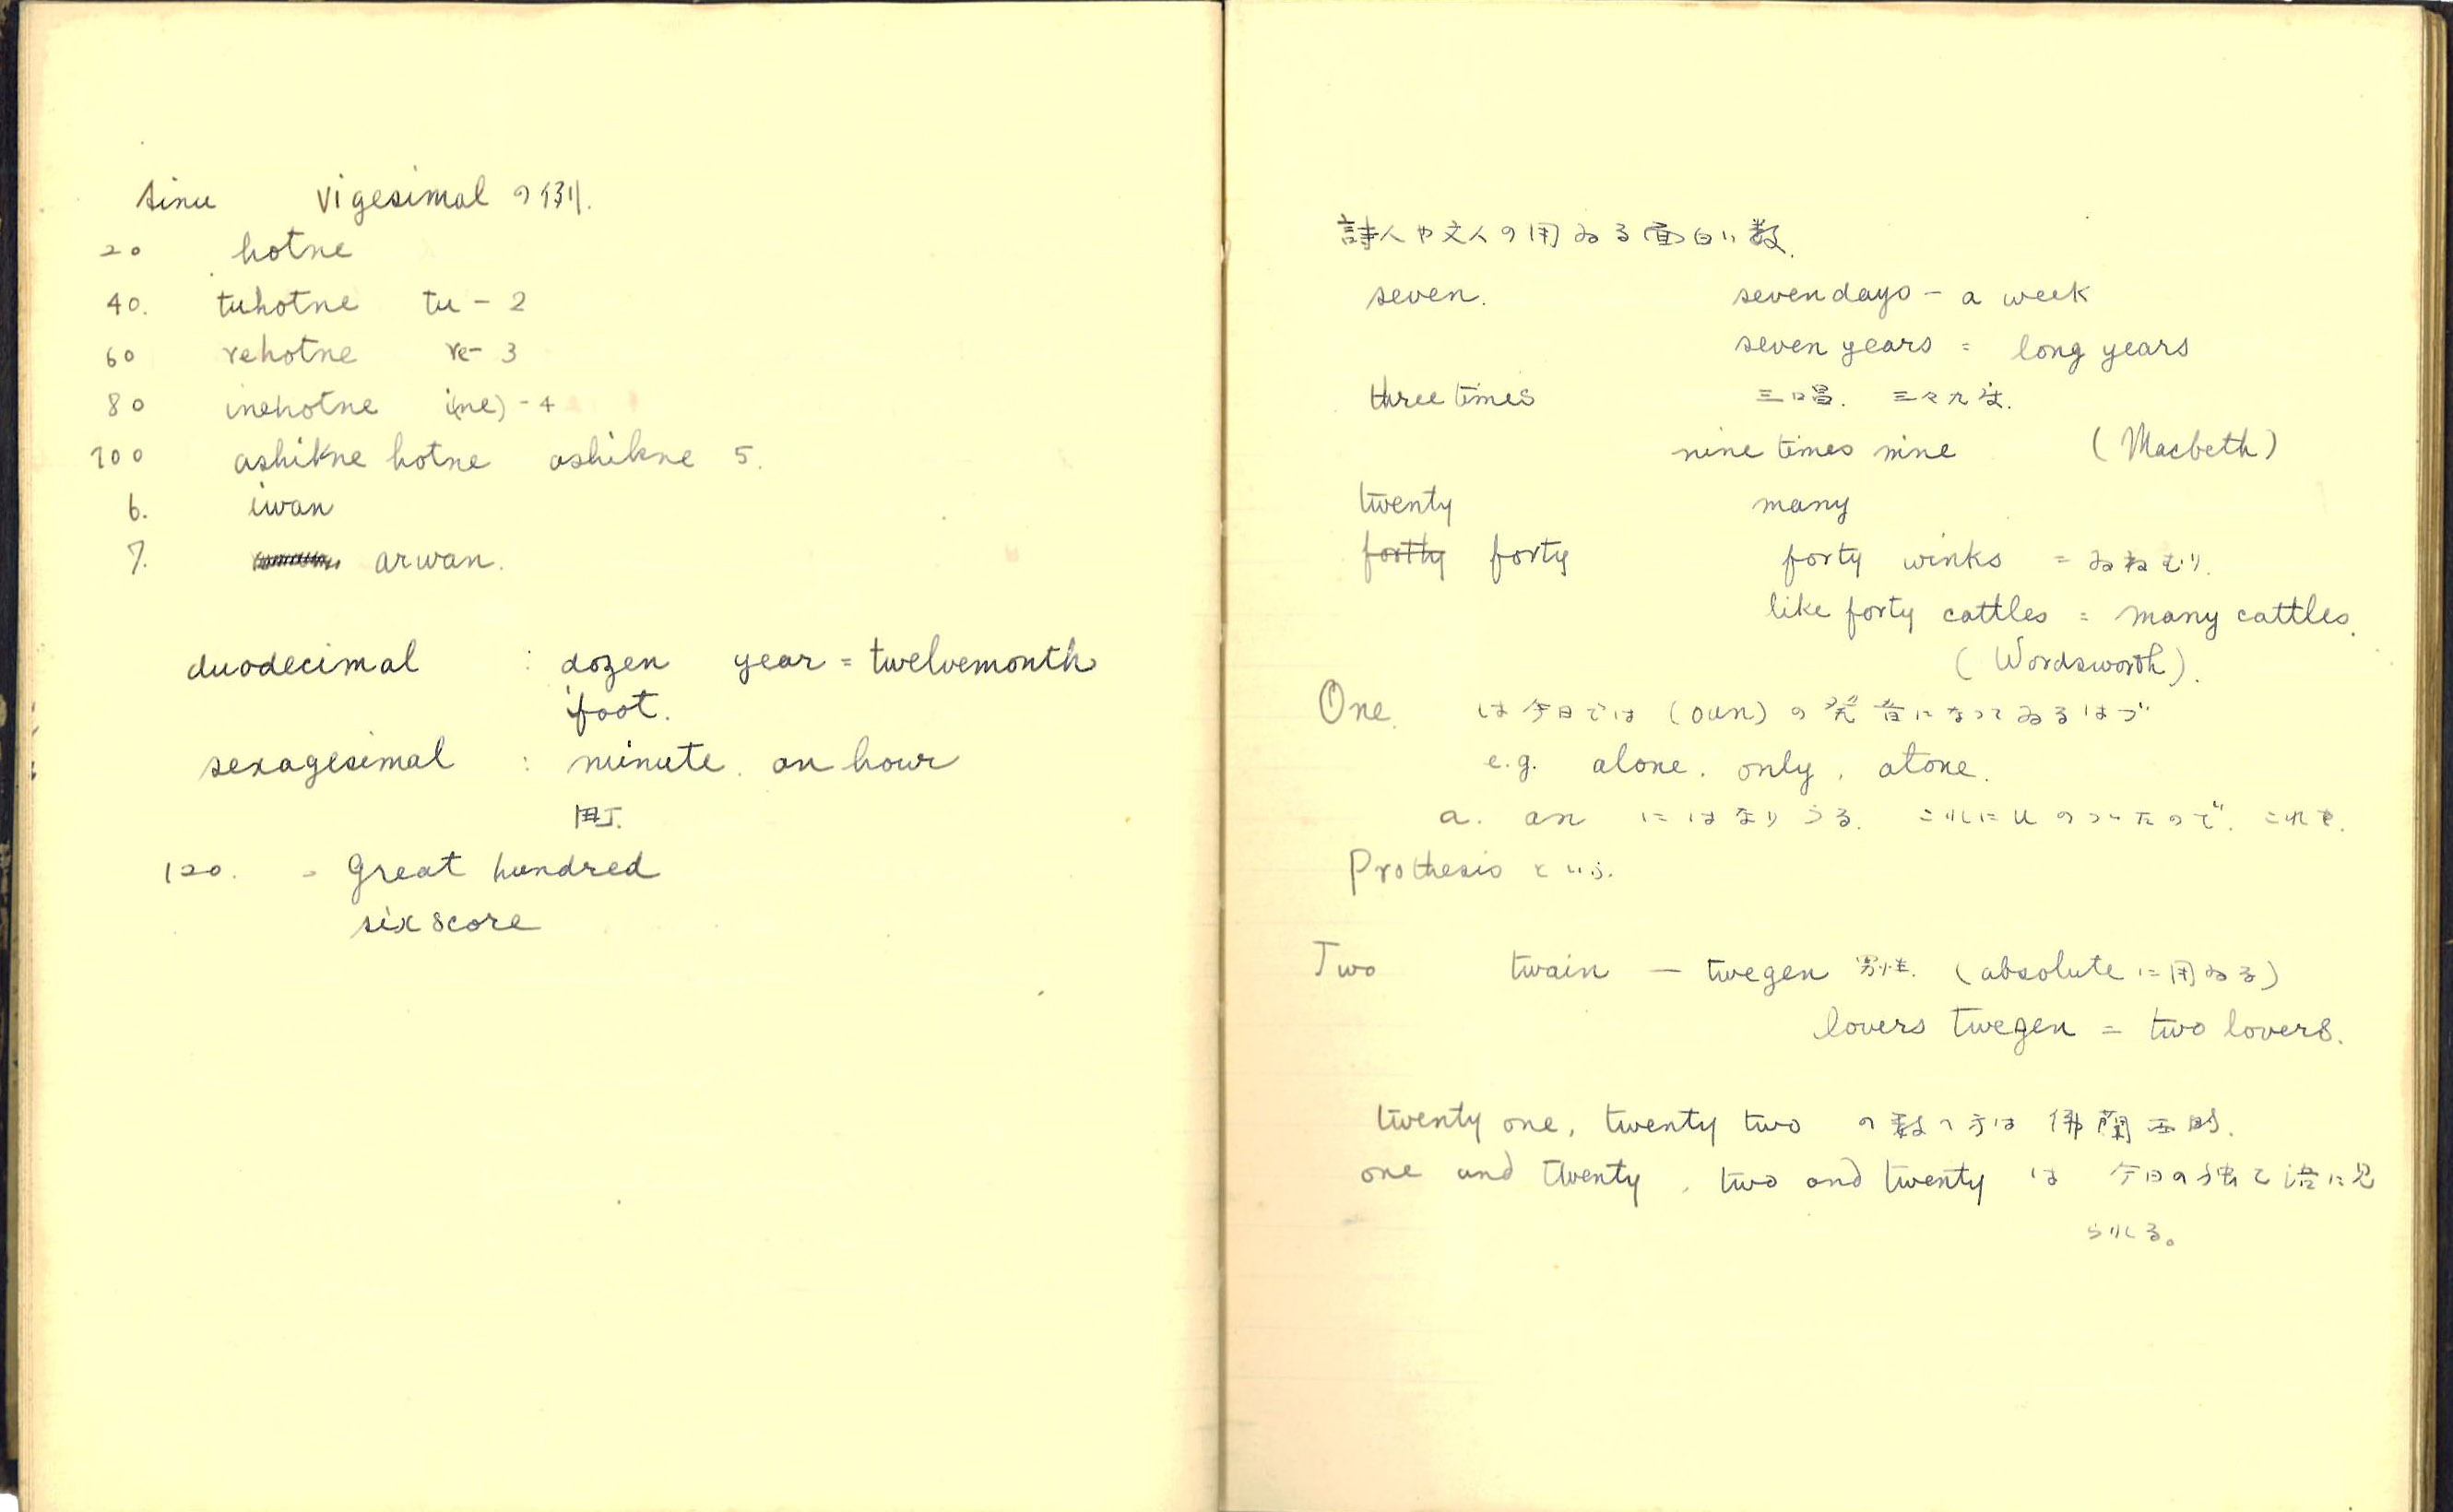 sinu vigesimal の例.
20 hotne
40. tuhotne tu - 2
60 rehotne re- 3
80 inehotne i(ne) - 4
100 ashikne hotne ashikne 5.
6. iwan
7. arwan.
duodecimal : dozen year = twelvemonth
foot.
sexagesimal : minute. an hour
町.
120. = Great hundred
six score
詩人や文人の用ゐる面白い数.
seven. seven days - a week
seven years = long years
three times 三唱. 三々九度.
nine times nine (Macbeth)
twenty many
forthy forty forty winks = ゐねむり.
like forty cattles = many cattles.
(Wordsworth).
One. は今日では (oun) の発音になつてゐるはづ
e.g. alone. only, atone.
a. an にはなりうる. これに u のついたので. これを.
Prothesis といふ.
Two twain — twegen 男性. (absolute に用ゐる)
lovers twegen = two lovers.
twenty one, twenty two の数へ方は 佛蘭西的.
one and twenty, two and twenty は 今日の独乙語に見
られる。